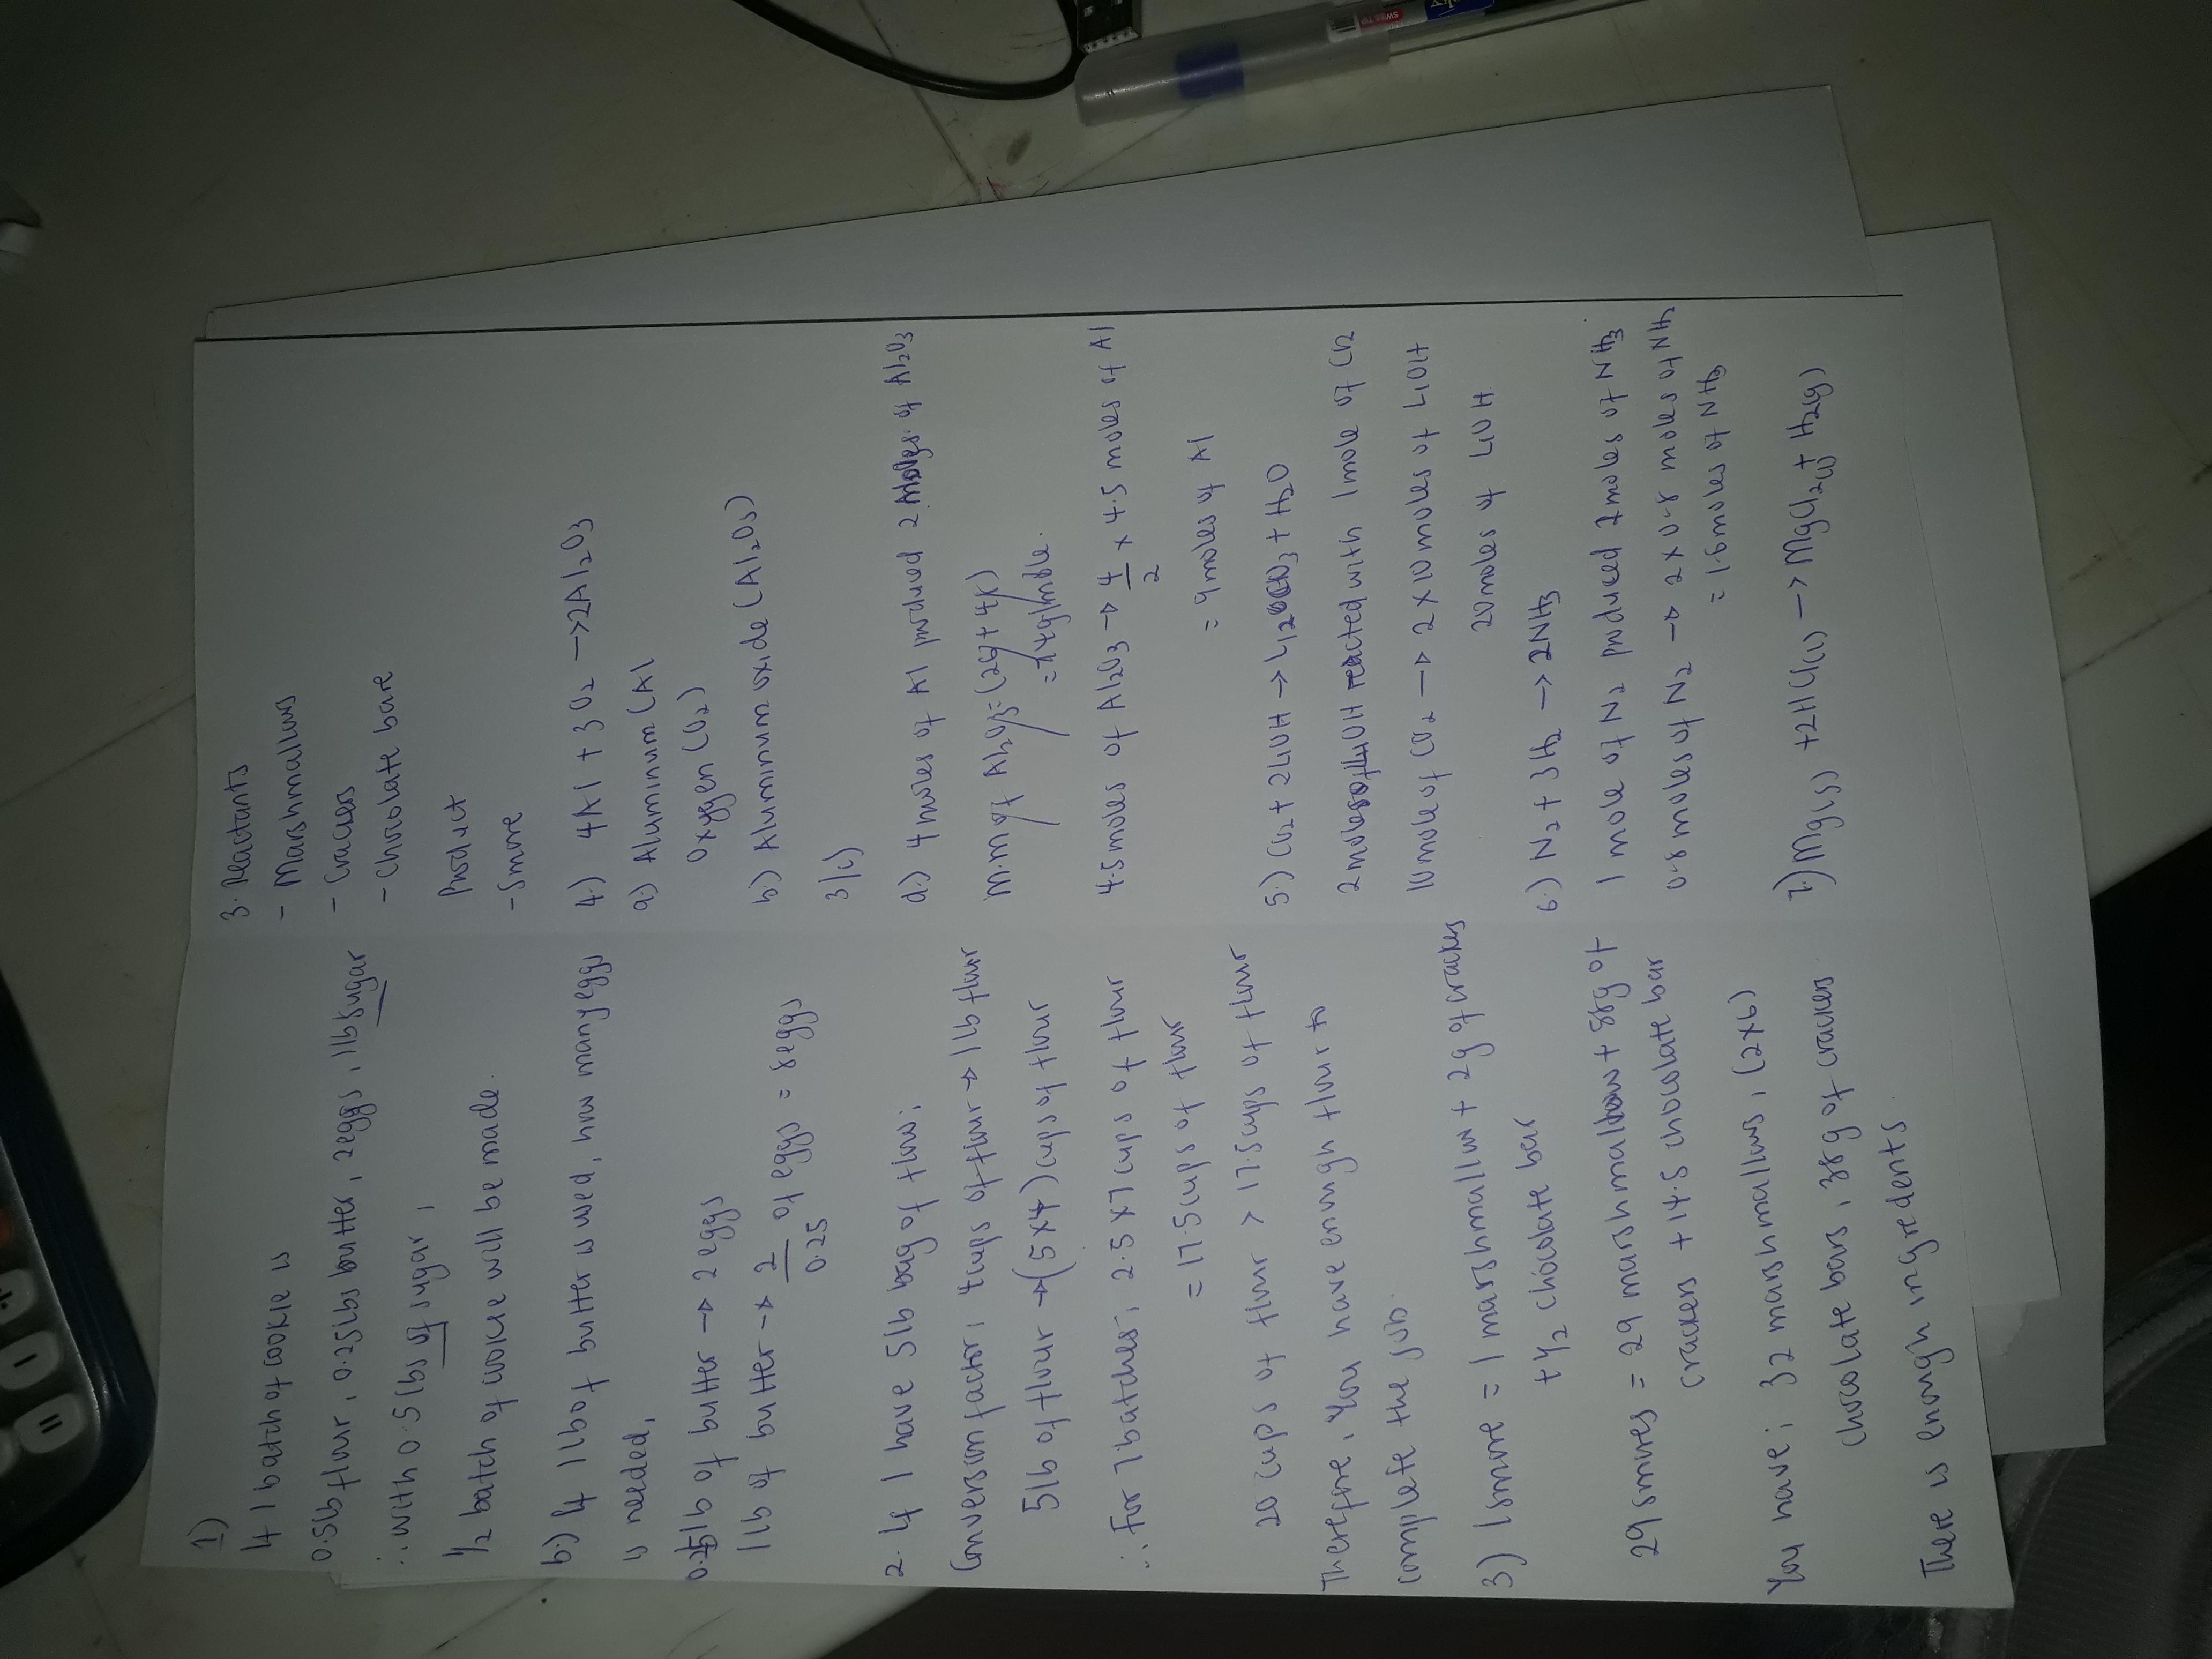 1)
If 1 batch of cookie is
0.5lb flour, 0.25lbs butter, 2eggs, 1lb sugar
∴ with 0.5lbs of sugar,
1/2 batch of cookie will be made.
b.) If 1lb of butter is used, how many eggs
is needed,
0.25lb of butter → 2 eggs
1lb of butter → 2/0.25 of eggs = 8eggs
2. If I have 5lb bag of flour;
Conversion factor, 4cups of flour → 1lb flour
5lb of flour → (5x4) cups of flour
∴ For 7batches; 2.5 x 7 cups of flour
= 17.5 cups of flour
20 cups of flour > 17.5cups of flour
Therefore, You have enough flour to
complete the job.
3) 1 smore = 1 marshmallow + 2g of crackers
+ 1/2 chocolate bar
29 smores = 29 marshmallows + 58g of
crackers + 14.5 chocolate bar
You have; 32 marshmallows, (2x6)
chocolate bars, 38g of crackers
There is enough ingredents.
3. Reactants
- Marshmallows
- Crackers
- Chocolate bare
Product
- Smore
4.) 4Al + 3O2 → 2Al2O3
a.) Aluminum (Al
Oxygen (O2)
b.) Aluminum oxide (Al2O3)
3/c)
d.) 4 moles of Al produced 2 moles of Al2O3
4.5 moles of Al2O3 → 4/2 x 4.5 moles of Al
= 9 moles of Al
5.) CO2 + 2LiOH → Li2CO3 + H2O
2moles of LiOH reacted with 1 mole of CO2
10 mole of CO2 → 2 x 10 moles of LiOH
20 moles of LiOH.
6.) N2 + 3H2 → 2NH3
1 mole of N2 produced 2moles of NH3
0.8 moles of N2 → 2 x 0.8 moles of NH3
= 1.6 moles of NH3
7.) Mg(s) + 2HCl(l) → MgCl2(l) + H2(g)
SWISS TIP